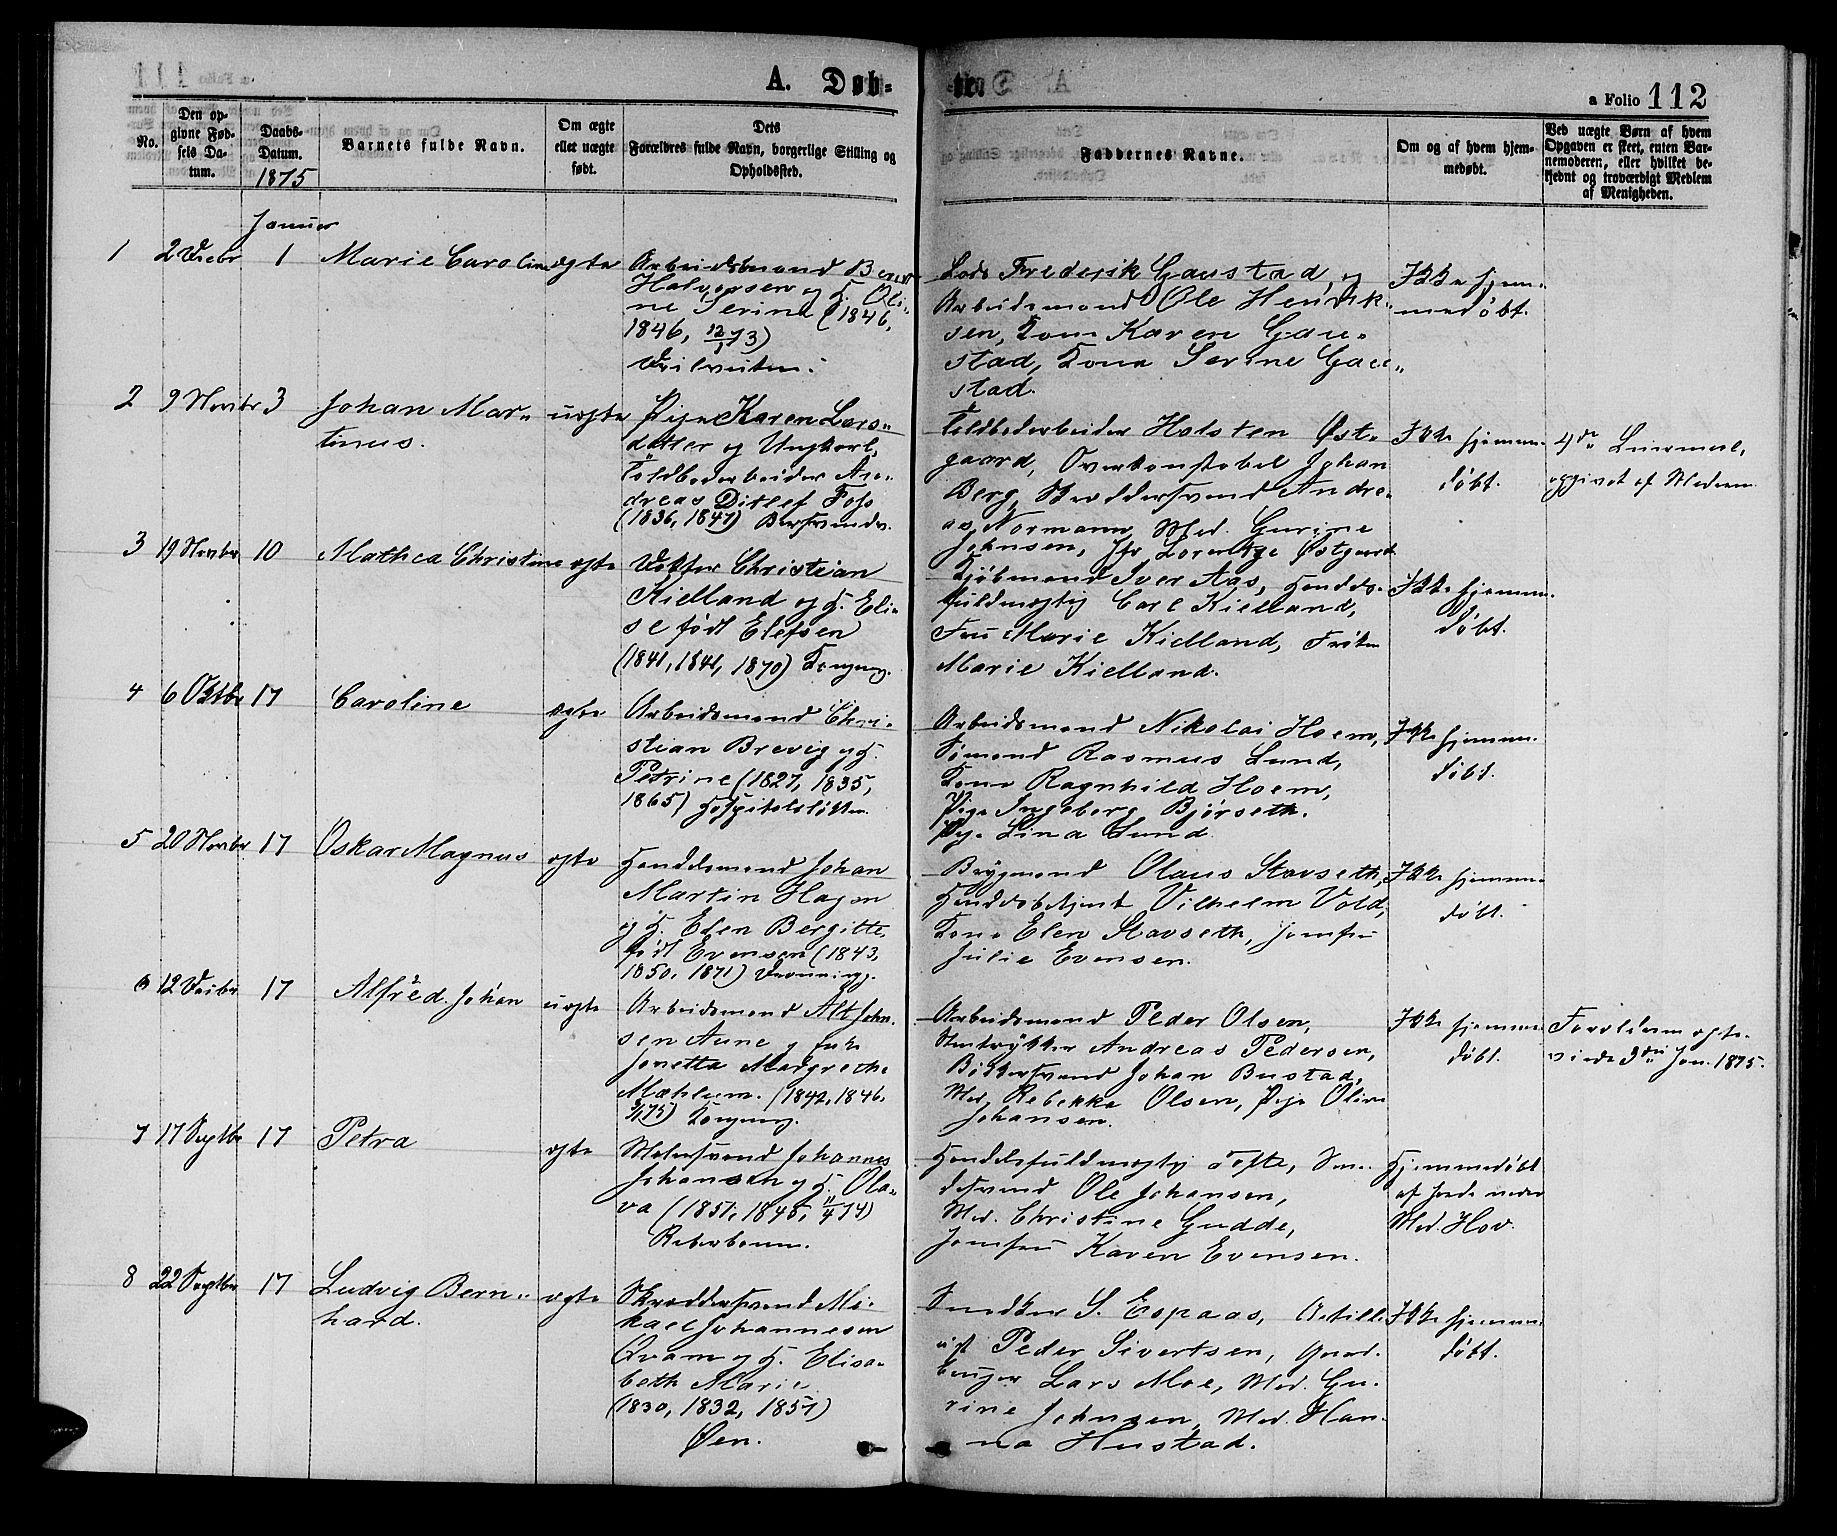 A. Døb-
te.
a Folio 112
No.
Den op-
givne Fød-
sels Da-
tum.
Daabs-
Datum.
1875
Barnets fulde Navn.
Om ægte
eller uægte
født.
Dets
Forældres fulde Navn, borgerlige Stilling og
Opholdssted.
Faddernes Navne.
Om og af hvem hjem-
medøbt.
Ved uægte Børn af hvem
Opgaven er skeet, enten Bar-
nemoderen, eller hvilket be-
kjendt og troværdigt Medlem
af Menigheden.
Januar
1
2 Decbr
1
Marie Caroline
ægte
Arbeidsmand Bernt
Halvorsen og H. Oli-
ne Serine (1846,
1846, 12/1 73)
Lods Frederik Gaustad, og
Arbeidsmand Ole Henrik-
sen, Kone Karen Gau-
stad, Kone Serine Gau-
stad.
Ikke hjem-
medøbt.
2
9 Novbr
3
Johan Mar-
tinus.
uægte
Pige Karen Lars-
datter og Ungkarl,
Toldbodarbeider An-
dreas Ditlef Foss
(1836, 1847)
Toldbodarbeider Holsten Øst-
gaard, Overkonstabel Johan
Berg, Skræddersvend Andre-
as Normann, Mad. Gurine
Johnsen, Jfr. Lorentze Østgaard
Ikke hjemme-
døbt.
4de
opgivet af Moderen
3
19 Novbr
10
Mathea Christine
ægte
Vækter Christian
Kielland og H. Eli-
se født Elefsen
(1841, 1841, 1870) Kongensg.
Kjøbmand Iver Aas, Handels-
fuldmægtig Carl Kielland,
Fru Marie Kielland, Frøken
Marie Kielland.
Ikke hjemme-
døbt.
4
6 Octbr
17
Caroline
ægte
Arbeidsmand Chri-
stian Brevig og H.
Petrine (1827, 1835,
1865) Hospitalsløkken.
Arbeidsmand Nikolai Hoem,
Sømand Rasmus Lund,
Kone Ragnhild Hoem,
Pige Ingeborg Bjørseth.
Pige Lina Lund.
Ikke hjemme-
døbt.
5
20 Novbr
17
Oskar Magnus
ægte
Handelsmand Johan
Martin Hagen
og H. Elen Bergitte,
født Evensen (1843,
1850, 1871) Dronningg.
Brygmand Olaus Stavseth,
Handelsbetjent Vilhelm Vold,
Kone Elen Stavseth, Jomfru
Julie Evensen.
Ikke hjemme-
døbt.
6
12 Decbr
17
Alfred Johan
uægte
Arbeidsmand Alt John-
sen Aune og Enke
Jonetta Margrethe
Mæhlum. (1842, 1846,
3/1 75) Kongensg.
Arbeidsmand Peder Olsen,
Stentrykker Andreas Pedersen,
Bødkersvend Johan Bustad,
Mad. Rebekka Olsen, Pige Oline
Johansen.
Ikke hjemme-
døbt.
Forældrene ægte-
viede 3die Jan. 1875.
7
17 Septbr
17
Petra
ægte
Malersvend Johannes
Johansen og H. Ola-
va (1851, 1845, 11/4 74)
Reberbanen.
Handelsfuldmægtig Tofte, Sme-
desvend Ole Johansen,
Mad. Christine Gudde,
Jomfru Karen Evensen.
Hjemmedøbt
af Jordemoder
Mad. Hov.
8
22 Septbr
17
Ludvig Bern-
hard.
ægte
Skræddersvend Mi-
kael Johannesen
Qvam og H. Elisa-
beth Marie
(1830, 1832, 1857)
Øen.
Snedker S. Espaas, Artille-
rist Peder Sivertsen, Gaard-
bruger Lars Moe, Mad. Gu-
rine Johnsen, Mad. Han-
na Hustad.
Ikke hjemme-
døbt.